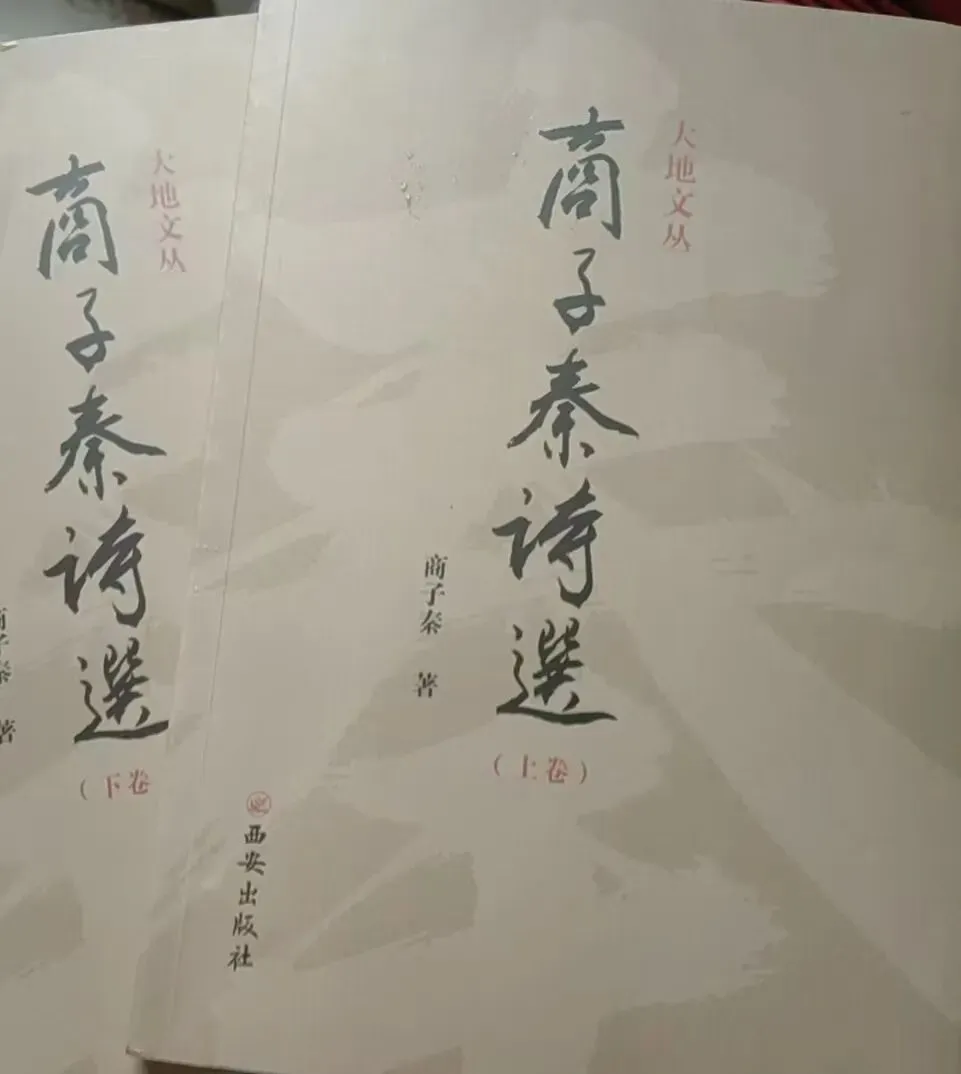 大地文丛
商子秦詩選
(上卷)
商子秦 著
西安出版社
大地文丛
商子秦詩選
(下卷
商子秦 著